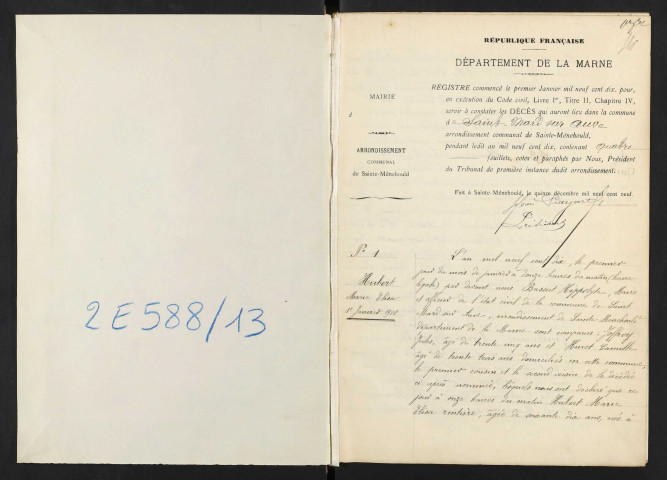 2E588/13
RÉPUBLIQUE FRANÇAISE
DÉPARTEMENT DE LA MARNE
MAIRIE
ARRONDISSEMENT
COMMUNAL
de Sainte-Ménehould
REGISTRE commencé le premier Janvier mil neuf cent dix, pour,
en exécution du Code civil, Livre Ier, Titre II, Chapitre IV,
servir à constater les DÉCÈS qui auront lieu dans la commune
d e Saint Mard sur Auve
arrondissement communal de Sainte-Ménehould,
pendant ledit an mil neuf cent dix, contenant quatre
feuillets, cotés et paraphés par Nous, Président
du Tribunal de première instance dudit arrondissement.
Fait à Sainte-Ménehould, le quinze décembre mil neuf cent neuf.
Président
No 1
Hubert
Marie Elisa
1er Janvier 1910
L'an mil neuf cent dix, le premier
jour du mois de janvier à douze heures du matin (heure
légale) par devant nous Bassart Hyppolyte, Maire
et officier de l'état civil de la commune de Saint
Mard sur Auve, arrondissement de Sainte Menehould
département de la Marne sont comparus: Joffroy
Jules, âgé de trente cinq ans et Huret Camille
âgé de trente trois ans domiciliés en cette commune,
le premier cousin et le second voisin de la décédée
ci après nommée, lesquels nous ont déclaré que ce
jour à onze heures du matin Hubert Marie
Elisa rentière, âgée de soixante dix ans, née à